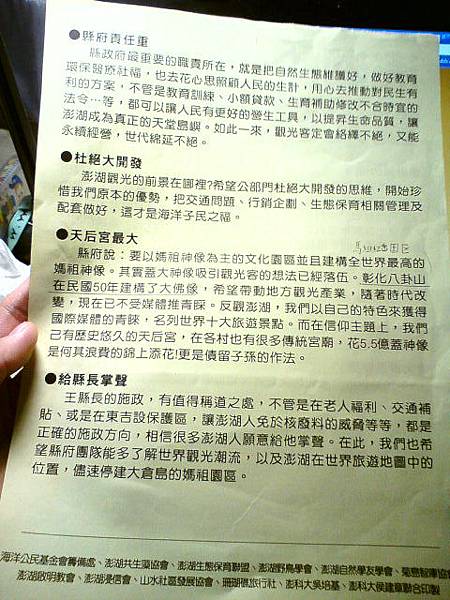 ●縣府責任重
縣政府最重要的職責所在，就是把自然生態維護好，做好教育
環保醫療社福，也去花心思照顧人民的生計，用心去推動對民生有
利的方案，不管是教育訓練、小額貸款、生育補助修改不合時宜的
法令…等，都可以讓人民有更好的營生工具，以提昇生命品質，讓
澎湖成為真正的天堂島嶼。如此一來，觀光客定會絡繹不絕，又能
永續經營，世代綿延不絕。
●杜絕大開發
澎湖觀光的前景在哪裡?希望公部門杜絕大開發的思維，開始珍
惜我們原本的優勢，把交通問題、行銷企劃、生態保育相關管理及
配套做好，這才是海洋子民之福。
●天后宮最大
縣府說：要以媽祖神像為主的文化園區並且建構全世界最高的
媽祖神像。其實蓋大神像吸引觀光客的想法已經落伍。彰化八卦山
在民國50年建構了大佛像，希望帶動地方觀光產業，隨著時代改
變，現在已不受媒體推青睬。反觀澎湖，我們以自己的特色來獲得
國際媒體的青睞，名列世界十大旅遊景點。而在信仰主題上，我們
己有歷史悠久的天后宮，在各村也有很多傳統宮廟，花5.5億蓋神像
是何其浪費的錦上添花!更是債留子孫的作法。
●給縣長掌聲
王縣長的施政，有值得稱道之處，不管是在老人福利、交通補
貼、或是在東吉設保護區，讓澎湖人免於核廢料的威脅等等，都是
正確的施政方向，相信很多澎湖人願意給他掌聲。在此，我們也希
望縣府團隊能多了解世界觀光潮流，以及澎湖在世界旅遊地圖中的
位置，儘速停建大倉島的媽祖園區。
海洋公民基金會籌備處、澎湖共生藻協會、澎湖生態保育聯盟、澎湖野鳥學會、澎湖自然學友學會、菊島智庫協會
澎湖啟明教會、澎湖浸信會、山水社區發展協會、珊瑚礁旅行社、澎科大吳培基、澎科大侯建章聯合印製